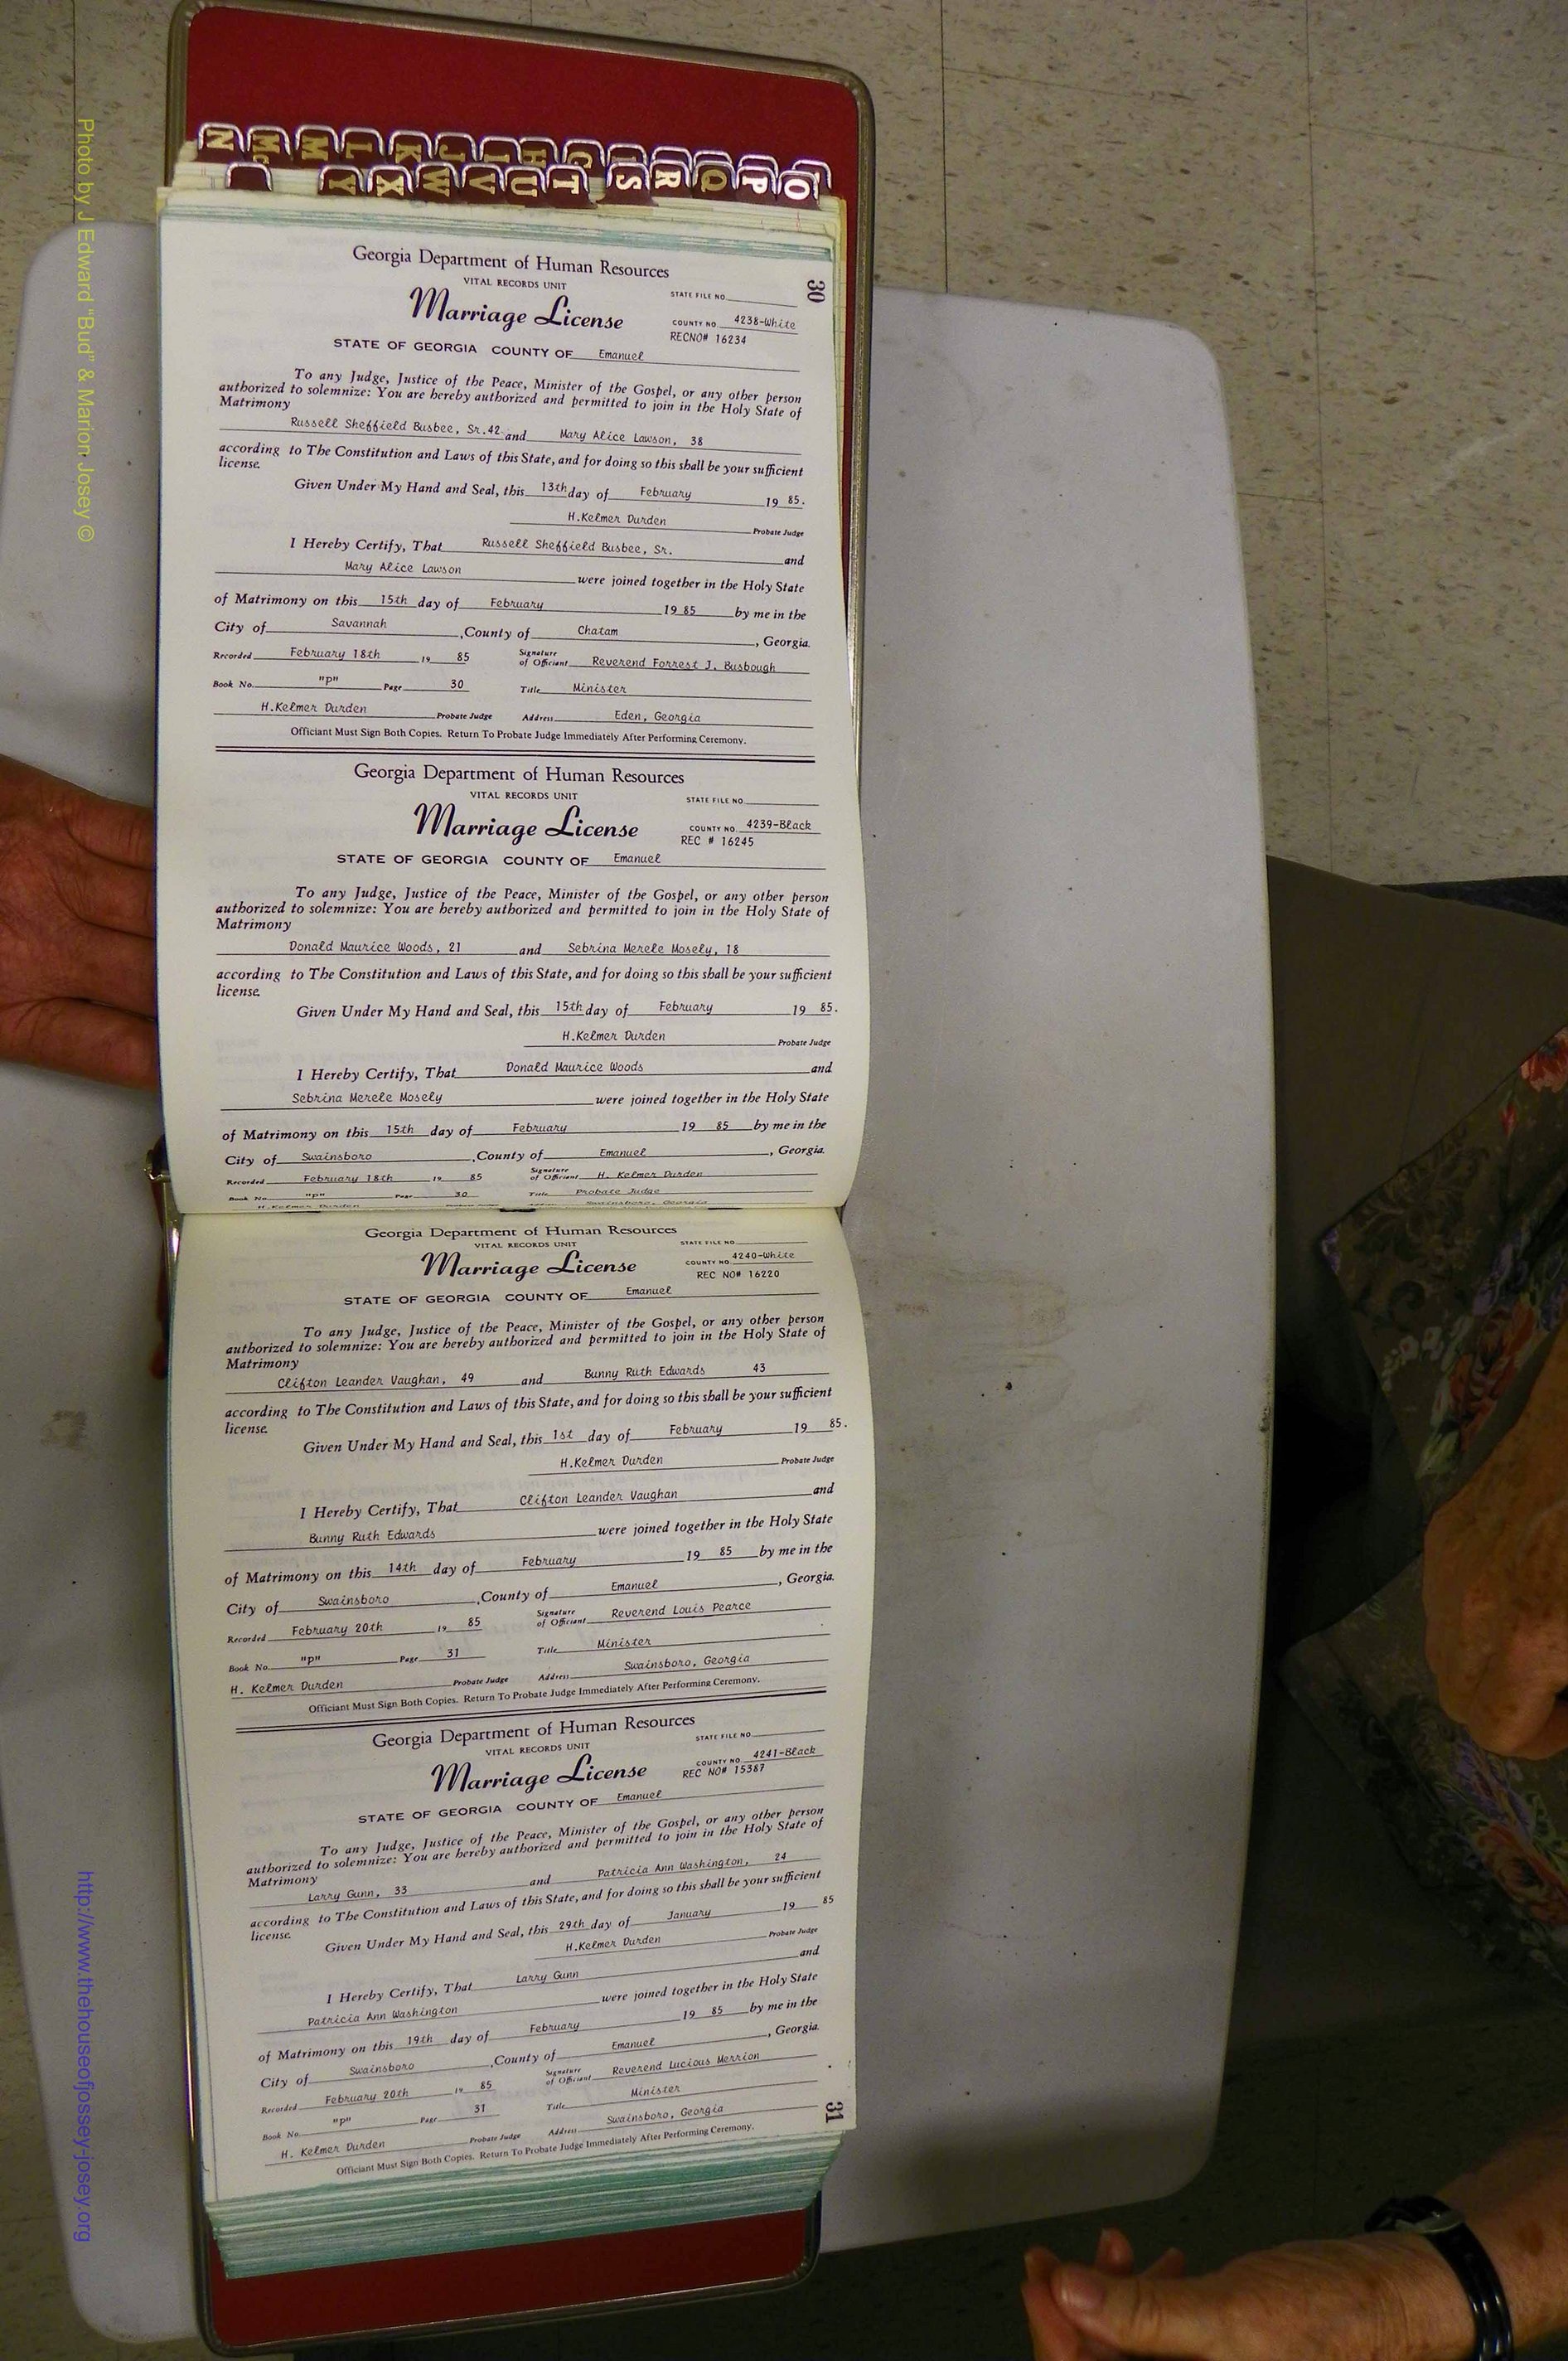 N Mc M L K J I H G F E D C B
Y X W V U T S R Q P O
30
Georgia Department of Human Resources
VITAL RECORDS UNIT
STATE FILE NO.
Marriage License
COUNTY NO. 4238-White
RECNO# 16234
STATE OF GEORGIA COUNTY OF Emanuel
To any Judge, Justice of the Peace, Minister of the Gospel, or any other person
authorized to solemnize: You are hereby authorized and permitted to join in the Holy State of
Matrimony
Russell Sheffield Busbee, Sr.42 and Mary Alice Lawson, 38
according to The Constitution and Laws of this State, and for doing so this shall be your sufficient
license.
Given Under My Hand and Seal, this 13th day of February 19 85.
H.Kelmer Durden
Probate Judge
I Hereby Certify, That Russell Sheffield Busbee, Sr. and
Mary Alice Lawson were joined together in the Holy State
of Matrimony on this 15th day of February 19 85 by me in the
City of Savannah, County of Chatam, Georgia.
Recorded February 18th 19 85 Signature of Officiant Reverend Forrest J. Busbough
Book No. "p" Page 30 Title Minister
H.Kelmer Durden Probate Judge Address Eden, Georgia
Officiant Must Sign Both Copies. Return To Probate Judge Immediately After Performing Ceremony.
Georgia Department of Human Resources
VITAL RECORDS UNIT
STATE FILE NO.
Marriage License
COUNTY NO. 4239-Black
REC # 16245
STATE OF GEORGIA COUNTY OF Emanuel
To any Judge, Justice of the Peace, Minister of the Gospel, or any other person
authorized to solemnize: You are hereby authorized and permitted to join in the Holy State of
Matrimony
Donald Maurice Woods, 21 and Sebrina Merele Mosely, 18
according to The Constitution and Laws of this State, and for doing so this shall be your sufficient
license.
Given Under My Hand and Seal, this 15th day of February 19 85.
H.Kelmer Durden
Probate Judge
I Hereby Certify, That Donald Maurice Woods and
Sebrina Merele Mosely were joined together in the Holy State
of Matrimony on this 15th day of February 19 85 by me in the
City of Swainsboro, County of Emanuel, Georgia.
Recorded February 18th 19 85 Signature of Officiant H. Kelmer Durden
Book No. "p" Page 30 Title Probate Judge
H.Kelmer Durden Swainsboro, Georgia
Georgia Department of Human Resources
VITAL RECORDS UNIT
STATE FILE NO.
Marriage License
COUNTY NO. 4240-White
REC NO# 16220
STATE OF GEORGIA COUNTY OF Emanuel
To any Judge, Justice of the Peace, Minister of the Gospel, or any other person
authorized to solemnize: You are hereby authorized and permitted to join in the Holy State of
Matrimony
Clifton Leander Vaughan, 49 and Bunny Ruth Edwards 43
according to The Constitution and Laws of this State, and for doing so this shall be your sufficient
license.
Given Under My Hand and Seal, this 1st day of February 19 85.
H.Kelmer Durden
Probate Judge
I Hereby Certify, That Clifton Leander Vaughan and
Bunny Ruth Edwards were joined together in the Holy State
of Matrimony on this 14th day of February 19 85 by me in the
City of Swainsboro, County of Emanuel, Georgia.
Recorded February 20th 19 85 Signature of Officiant Reverend Louis Pearce
Book No. "p" Page 31 Title Minister
H. Kelmer Durden Probate Judge Address Swainsboro, Georgia
Officiant Must Sign Both Copies. Return To Probate Judge Immediately After Performing Ceremony.
Georgia Department of Human Resources
VITAL RECORDS UNIT
STATE FILE NO.
Marriage License
COUNTY NO. 4241-Black
REC NO# 15387
STATE OF GEORGIA COUNTY OF Emanuel
To any Judge, Justice of the Peace, Minister of the Gospel, or any other person
authorized to solemnize: You are hereby authorized and permitted to join in the Holy State of
Matrimony
Larry Gunn, 33 and Patricia Ann Washington, 24
according to The Constitution and Laws of this State, and for doing so this shall be your sufficient
license.
Given Under My Hand and Seal, this 29th day of January 19 85
H.Kelmer Durden
Probate Judge
I Hereby Certify, That Larry Gunn and
Patricia Ann Washington were joined together in the Holy State
of Matrimony on this 19th day of February 19 85 by me in the
City of Swainsboro, County of Emanuel, Georgia.
Recorded February 20th 19 85 Signature of Officiant Reverend Lucious Merrion
Book No. "p" Page 31 Title Minister
H. Kelmer Durden Probate Judge Address Swainsboro, Georgia
Officiant Must Sign Both Copies. Return To Probate Judge Immediately After Performing Ceremony.
31
Photo by J Edward "Bud" & Marion Josey ©
http://www.thehouseofjossey-josey.org